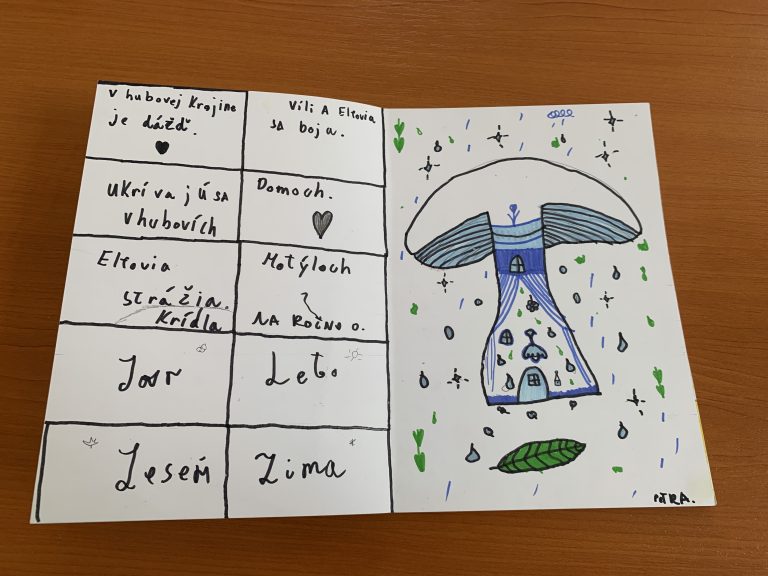 V hubovej Krajine
je dážď.
Víli A Eltovia
SA boja.
UKrívajú SA
v hubovích
Domoch.
Eltovia
strážia.
Krídla
Motýloch
NA ROČNO O.
Jar
Leto
Jeseň
Zima
PETRA.